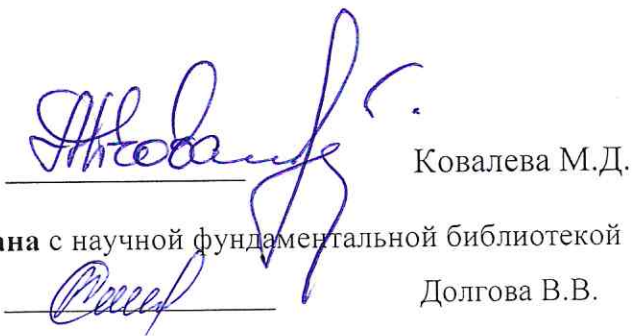 Ковалева М.Д.
ана с научной фундаментальной библиотекой
Долгова В.В.